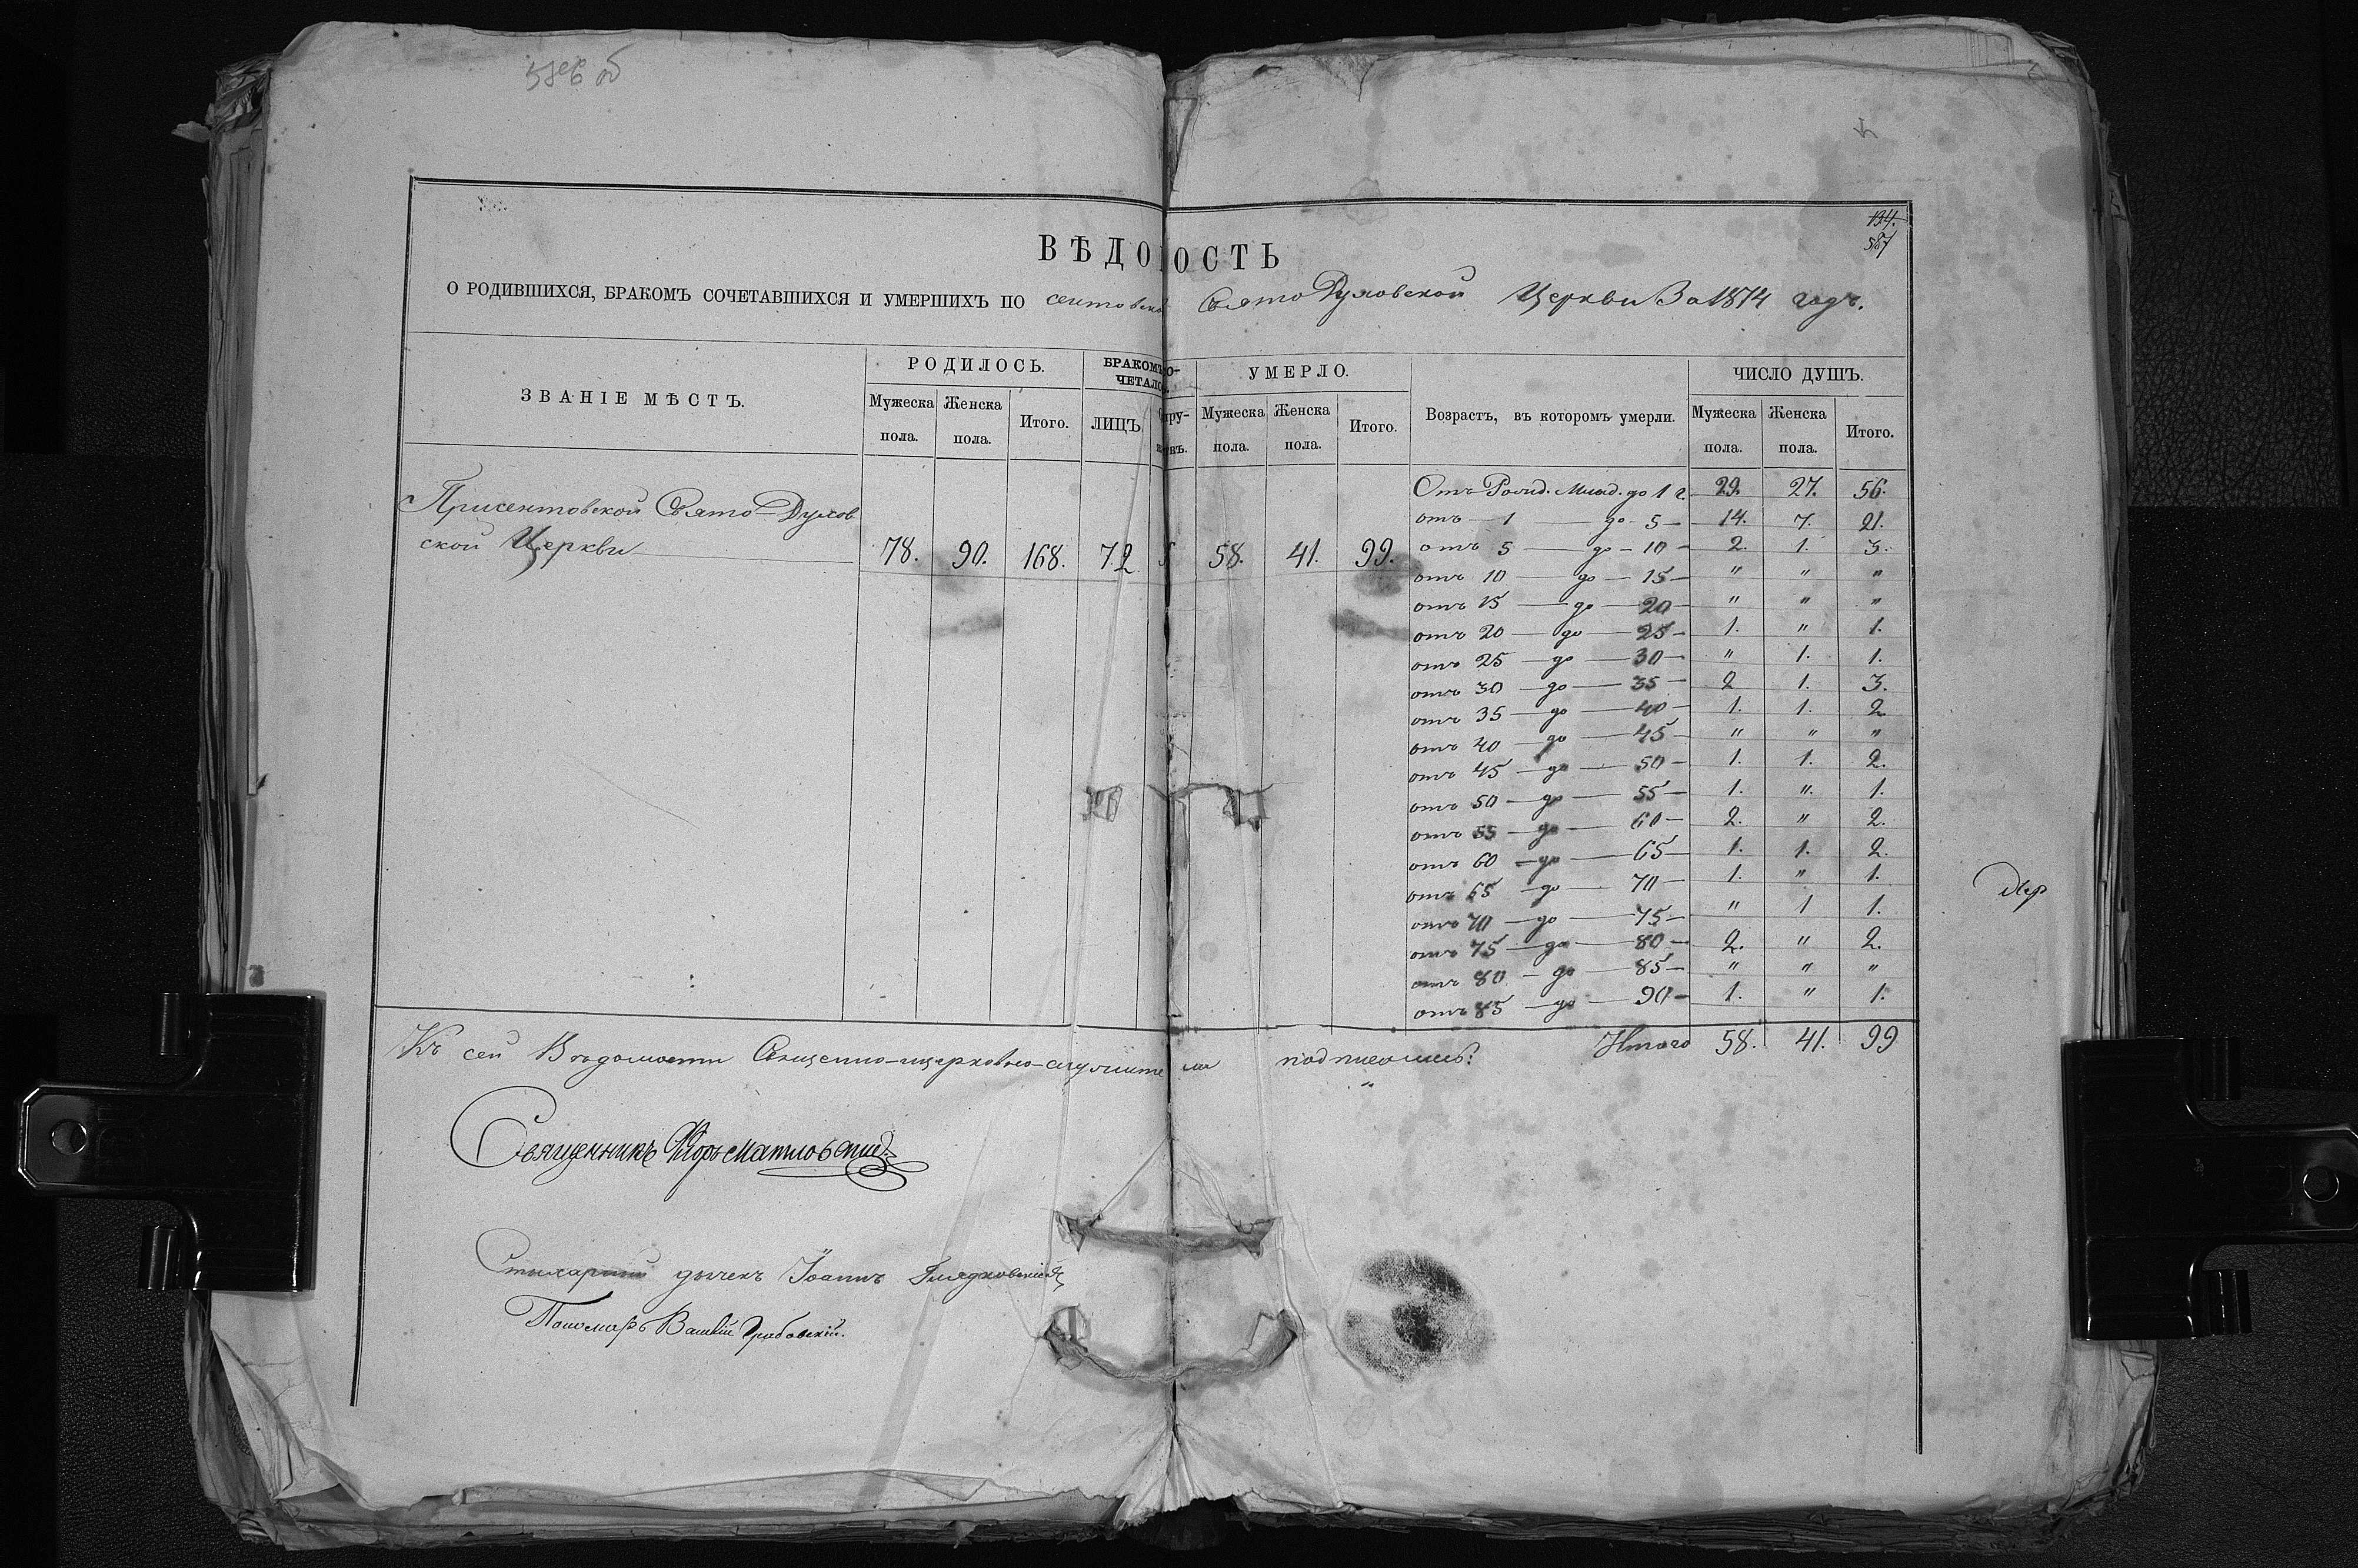 586 об
134.
587
ВѢДОМОСТЬ
О РОДИВШИХСЯ, БРАКОМЪ СОЧЕТАВШИХСЯ И УМЕРШИХЪ ПО сентовско Свято Духовской Церкви За 1874 годъ.
ЗВАНІЕ МѢСТЪ.
РОДИЛОСЬ.
Мужеска пола.
Женска пола.
Итого.
БРАКОМЪ СО-
ЧЕТАЛОСЬ.
ЛИЦЪ.
УМЕРЛО.
Мужеска пола.
Женска пола.
Итого.
Возрастъ, въ которомъ умерли.
ЧИСЛО ДУШЪ.
Мужеска пола.
Женска пола.
Итого.
Присентовской Свято-Духов
ской Церкви 78. 90. 168. 72 58. 41. 99.
Отъ Рожд. Млад. до 1 г. 29. 27. 56.
отъ 1 до 5 14. 7. 21.
отъ 5 до 10 2. 1. 3.
отъ 10 до 15 " " "
отъ 15 до 20 " " "
отъ 20 до 25 1. " 1.
отъ 25 до 30 " 1. 1.
отъ 30 до 35 2 1. 3.
отъ 35 до 40 1. 1. 2
отъ 40 до 45 " " "
отъ 45 до 50 1. 1. 2.
отъ 50 до 55 1. " 1.
отъ 55 до 60 2. " 2.
отъ 60 до 65 1. 1. 2.
отъ 65 до 70 1. " 1.
отъ 70 до 75 " 1 1.
отъ 75 до 80 2. " 2.
отъ 80 до 85 " " "
отъ 85 до 90 1. " 1.
Итого 58. 41. 99
Къ сей Вѣдомости Священно-церковно-служители подписались:
Священникъ
Стихарный дьячекъ Іоаннъ
Пономарь Василій Грабовскій.